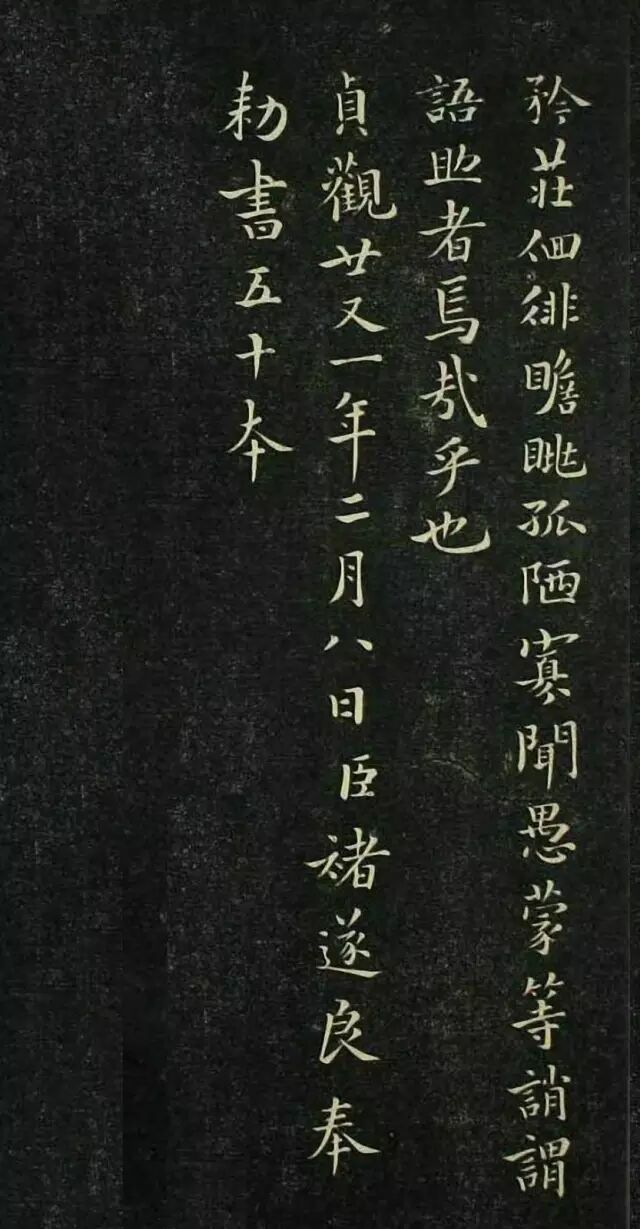 矜莊佪徘瞻眺孤陋寡聞愚蒙等誚謂
語助者焉哉乎也
貞觀廿又一年二月八日臣褚遂良奉
勑書五十本